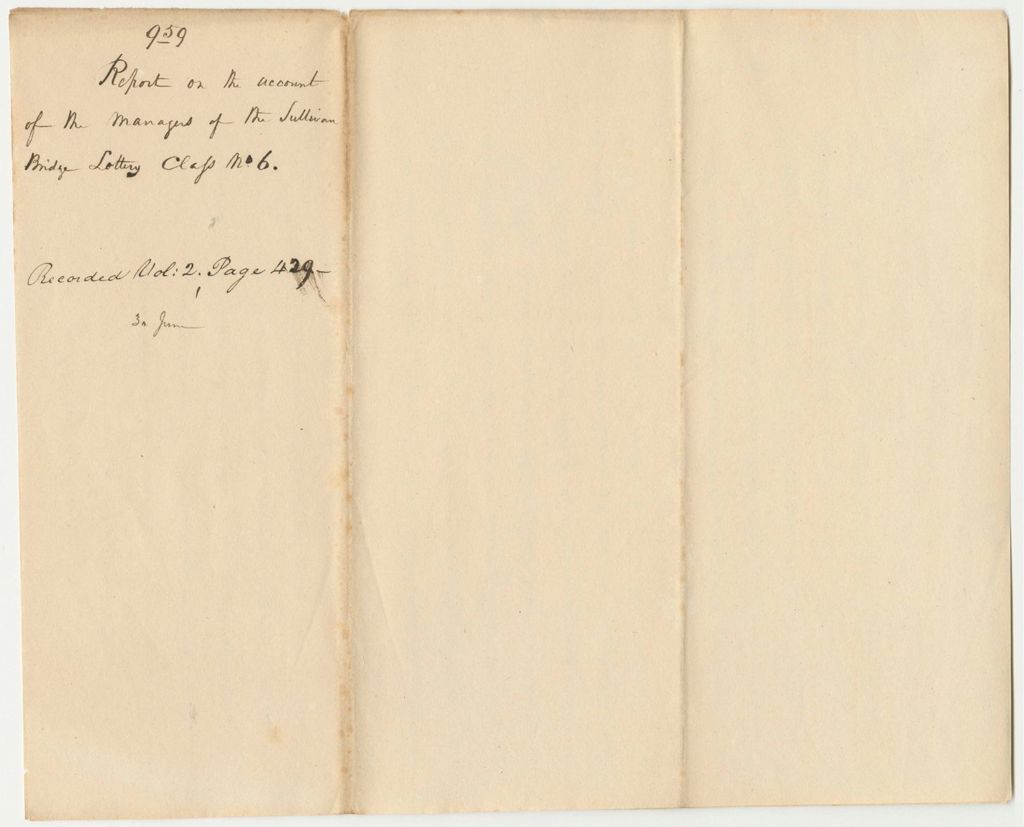 959
Report on the account
of the Managers of the Sullivan
Bridge Lottery Class No 6.
Recorded Vol: 2. Page 429-
June